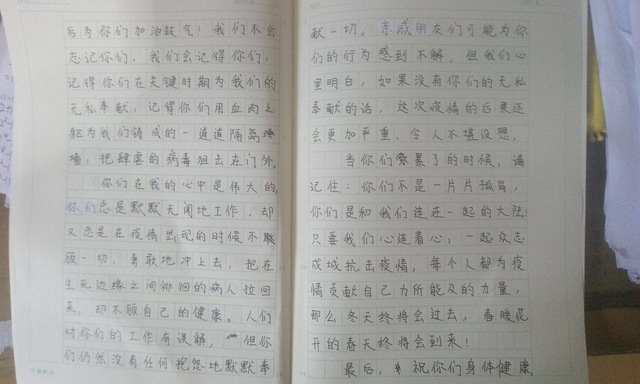 后为你们加油鼓气！我们不会
忘记你们，我们会记得你们，
记得你们在关键时期为我们的
无私奉献，记得你们用血肉之
躯为我们铸成的一道道隔离
墙，把肆虐的病毒狙击在门外。
你们在我的心中是伟大的，
你们总是默默无闻地工作，却
又总是在疫情出现的时候不
顾一切，勇敢地冲上去，把在
生死边缘之间徘徊的病人拉回
来，却不顾自己的健康。人们
对你们的工作有误解，但你
们仍然没有任何抱怨地默默奉
献一切。亲戚朋友们可能为你
们的行为感到不解，但我们心
里明白，如果没有你们的无私
奉献的话，这次疫情的后果还
会更加严重、令人不堪设想。
当你们累了的时候，请
记住：你们不是一片片孤岛，
你们是和我们连在一起的大陆！
只要我们心连着心，一起众志
成城抗击疫情，每个人都为疫
情贡献自己力所能及的力量，
那么冬天终将会过去，春暖花
开的春天终将会到来！
最后，祝你们身体健康